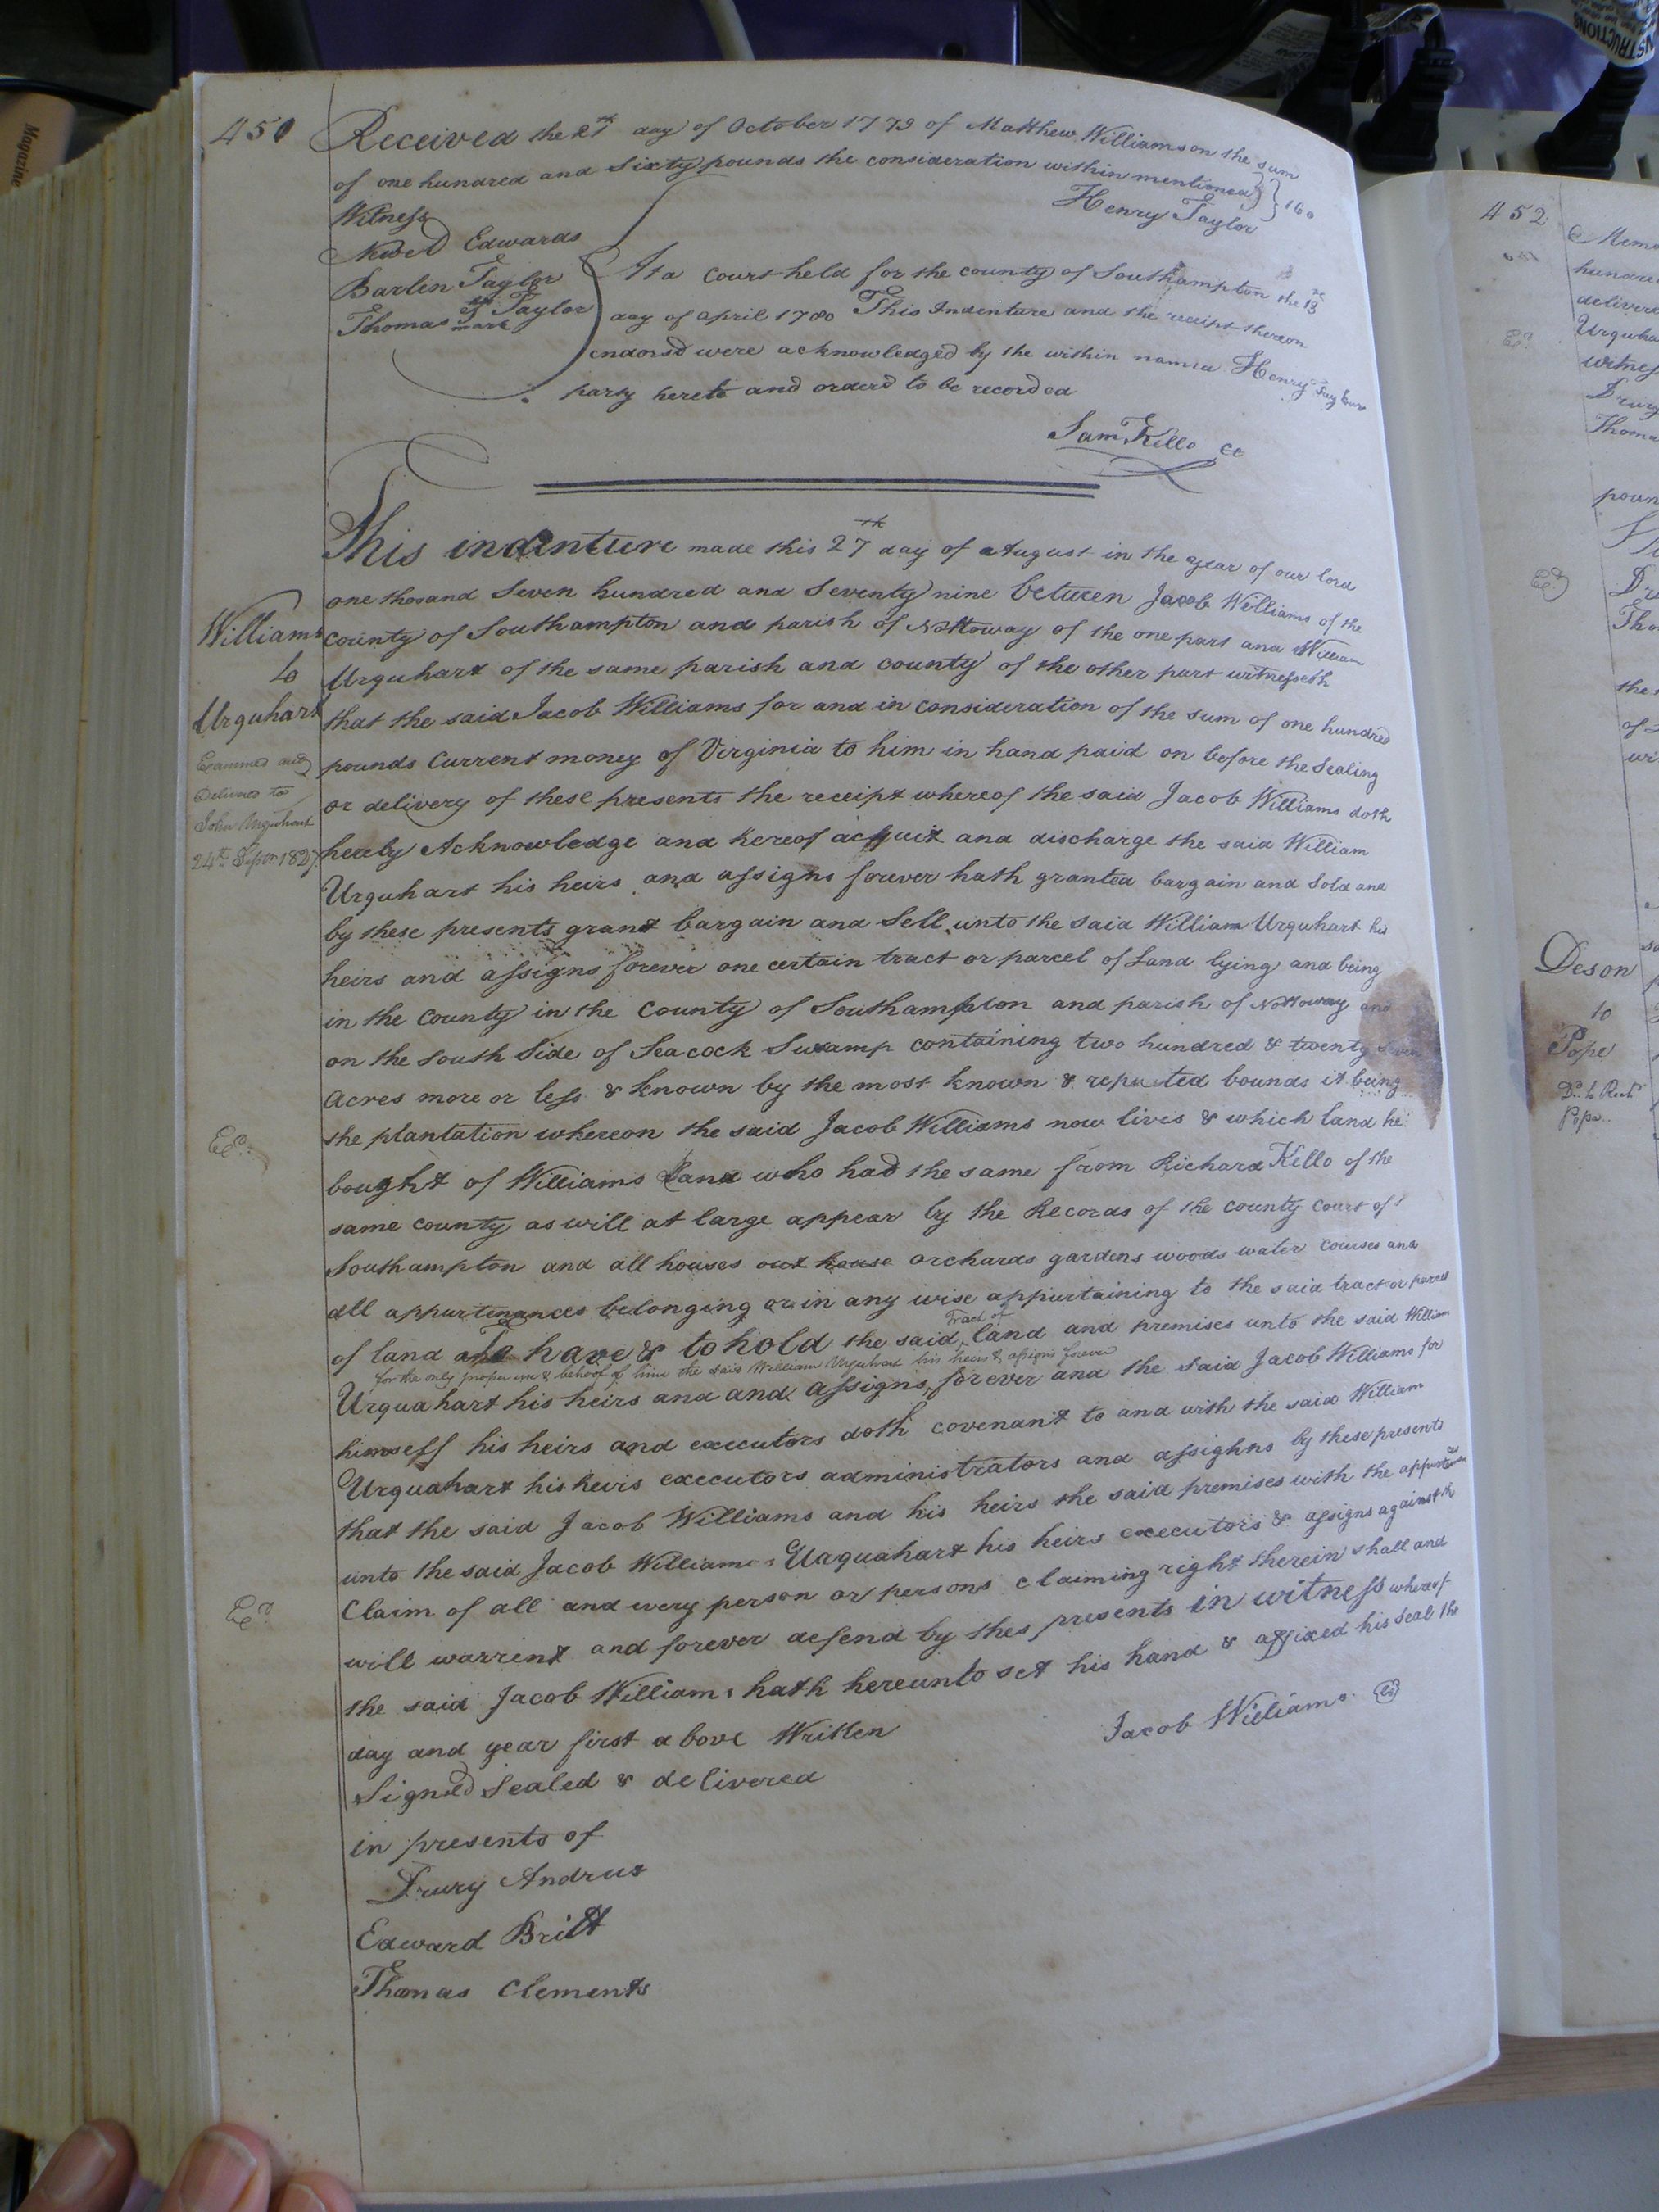 450
Received the 21th day of October 1779 of Matthew Williamson the sum
of one hundred and Sixty pounds the consideration within mentioned } 160
Henry Taylor
Witness
Edwards
Barlen Taylor
Thomas Taylor
mark
At a Court held for the county of Southampton the 13
day of april 1780 This Indenture and the receipt thereon
endorsd were acknowledged by the within named Henry Taylor
party hereto and orderd to be recorded
Sam Kello CC
This indenture made this 27th day of August in the year of our lord
one thosand Seven hundred and Seventy nine between Jacob Williams of the
county of Southampton and parish of Nottoway of the one part and William
Urquhart of the same parish and county of the other part witnesseth
that the said Jacob Williams for and in consideration of the sum of one hundred
pounds Current money of Virginia to him in hand paid on before the Sealing
or delivery of these presents the receipt whereof the said Jacob Williams doth
hereby Acknowledge and hereof acquit and discharge the said William
Urquhart his heirs and assigns forever hath granted bargain and Sold and
by these presents grant bargain and Sell unto the said William Urquhart his
heirs and assigns forever one certain tract or parcel of Land lying and being
in the County in the County of Southampton and parish of Nottoway and
on the South Side of Seacock Swamp containing two hundred & twenty seven
Acres more or less & known by the most known & reputed bounds it being
the plantation whereon the said Jacob Williams now lives & which land he
bought of Williams who had the same from Richard Kello of the
same county as will at large appear by the Records of the county Court of
Southampton and all houses out house orchards gardens woods water courses and
all appurtenances belonging or in any wise appurtaining to the said tract or parcel
of land To have & to hold the said Tract of land and premises unto the said William
for the only proper use & behoof of him the said William Urquhart his heirs & assigns forever
Urquahart his heirs and and assigns forever and the said Jacob Williams for
himself his heirs and executors doth covenant to and with the said William
Urquahart his heirs executors administrators and assighns by these presents
that the said Jacob Williams and his heirs the said premises with the appurtenances
unto the said Jacob Williams Uaquahart his heirs executors & assigns against the
Claim of all and every person or persons claiming right therein shall and
will warrent and forever defend by thes presents in witness whereof
the said Jacob Williams hath hereunto set his hand & affixed his Seal the
day and year first above Written
Jacob Williams LS
Signed Sealed & delivered
in presents of
Drury Andrus
Edward Britt
Thomas Clements
Williams
to
Urquhart
Examined and
Delivered to
John Urquhart
24th Septr. 1827
Exd.
Exd.
452
Deson
to
Pope
Magazine